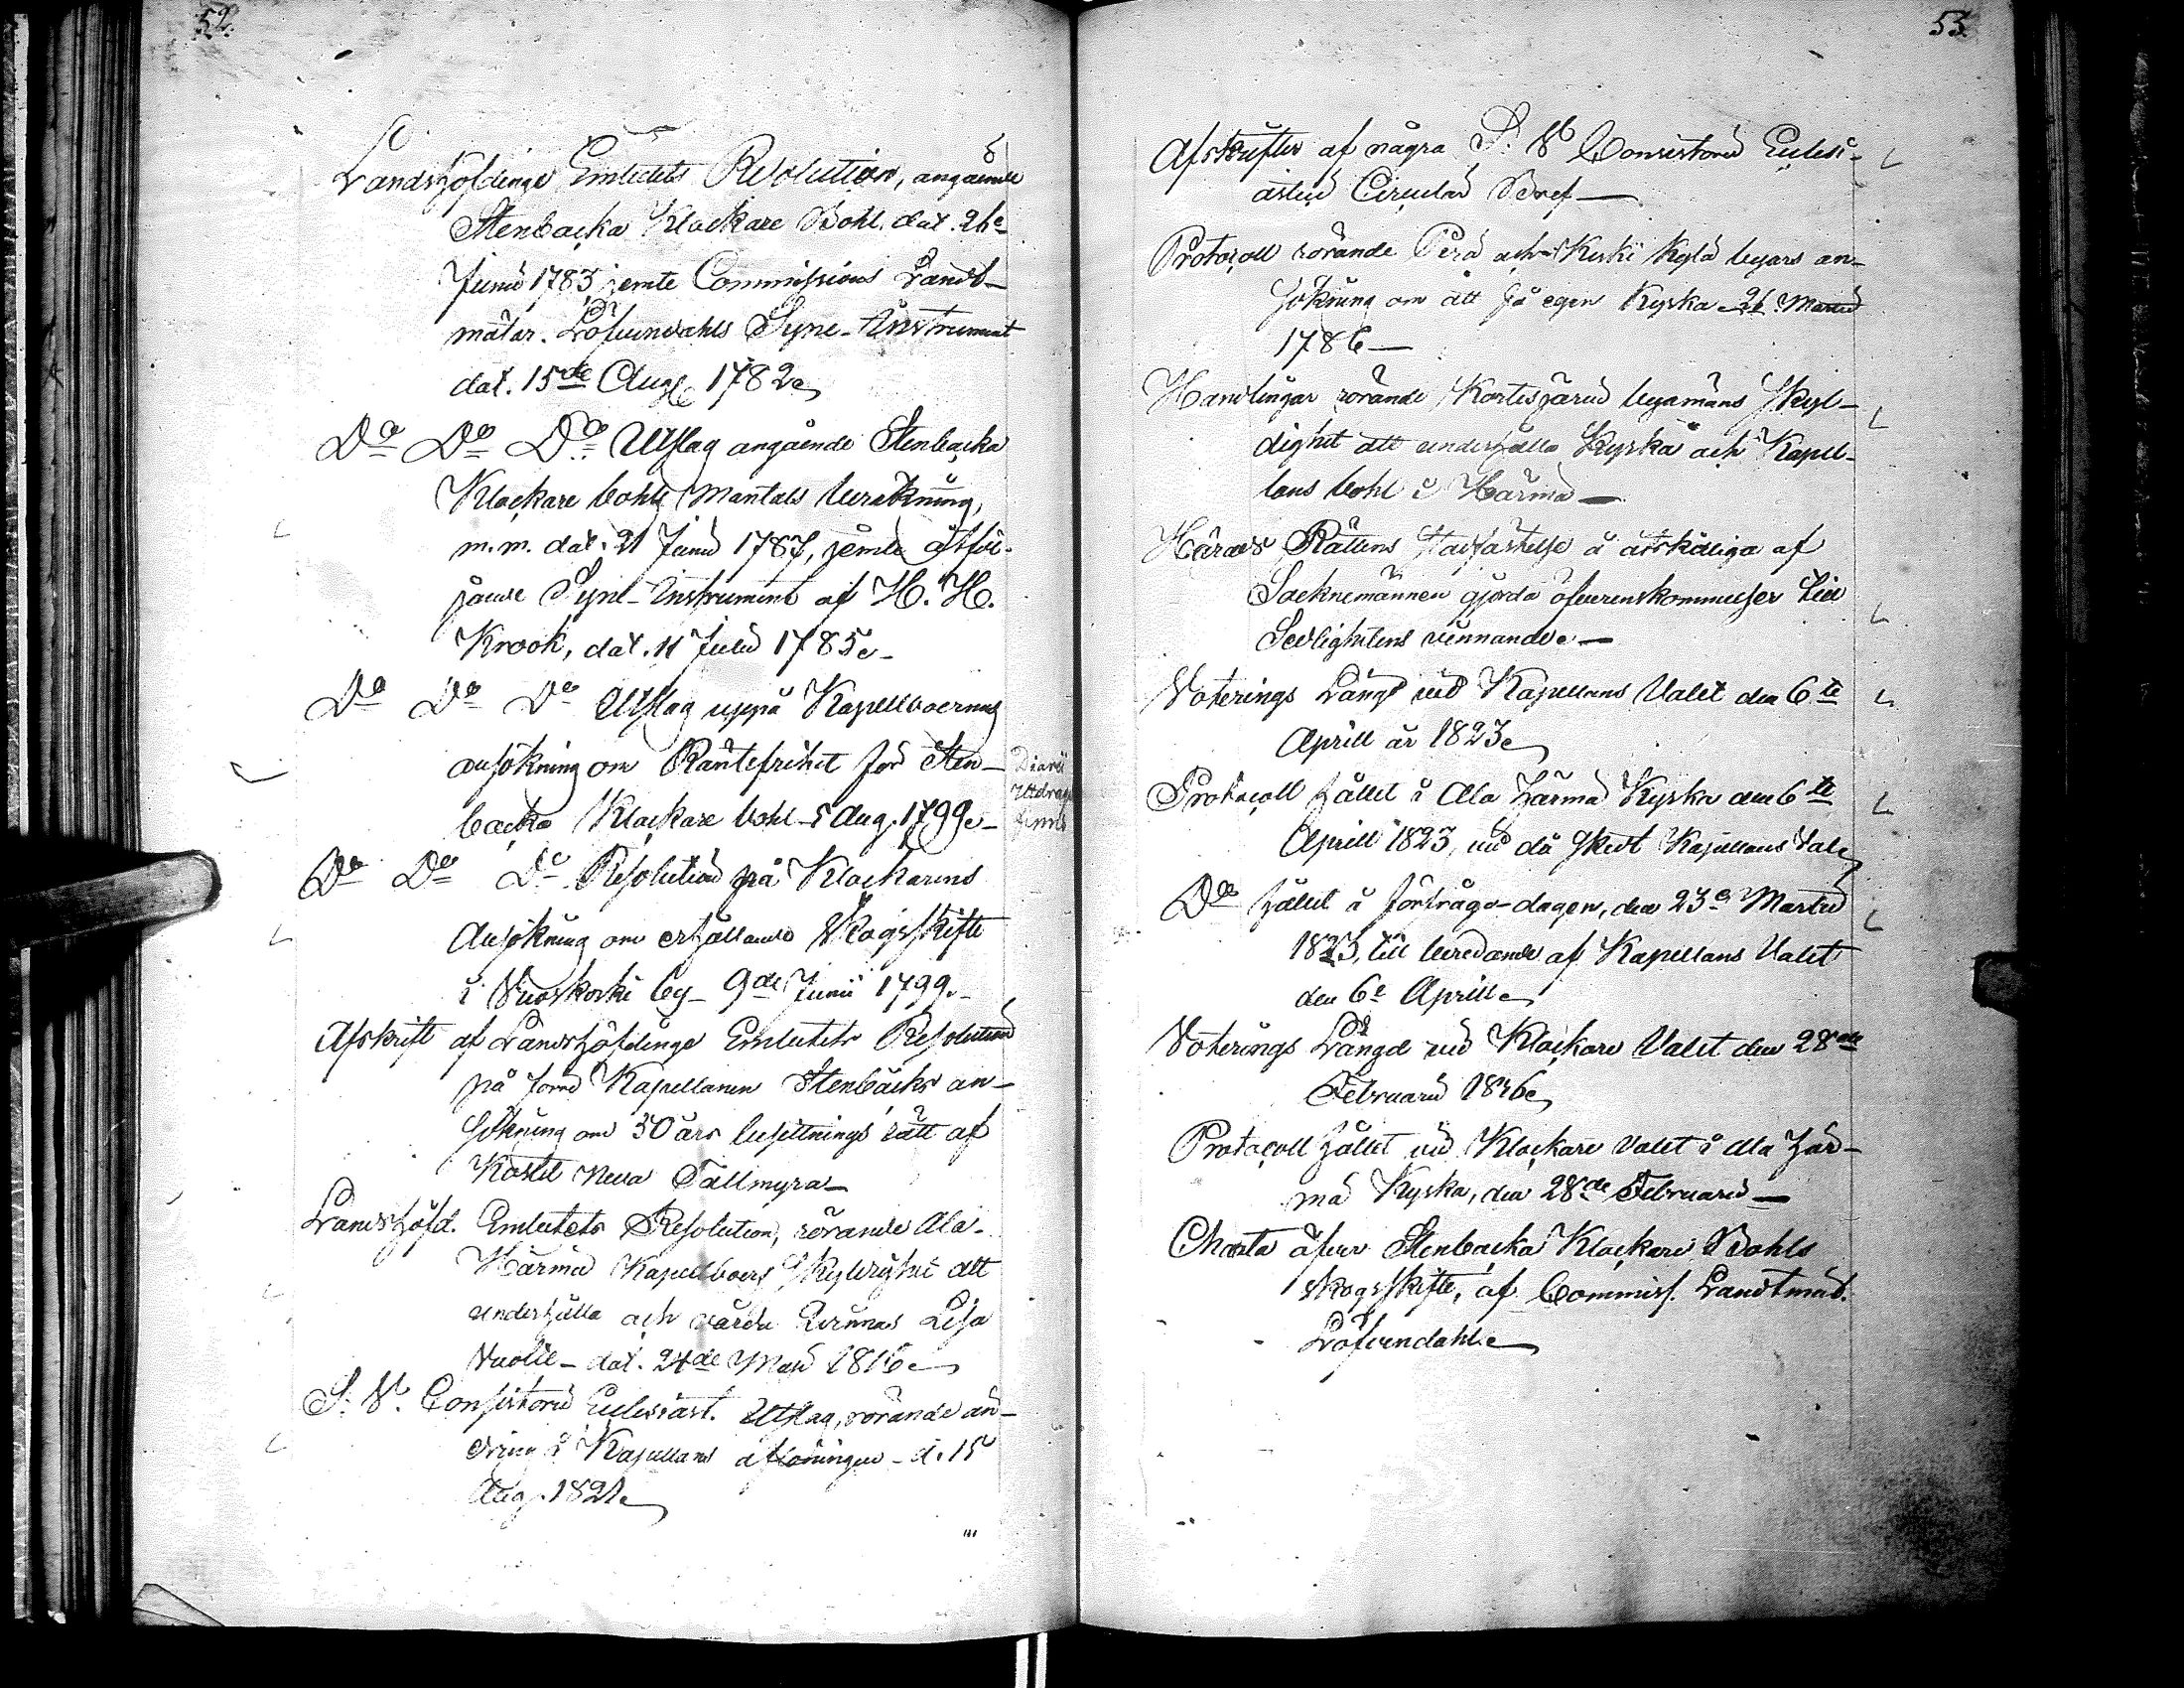 52.
Landshöfdinge Embetets Resolution, angående
Stenbacka Klockare Bohl. dat. 26e
Junii 1783 jemte Commissions Landt-
mätar. Löfvendahls Syne-Instrument
dat. 15de Aug. 1782
Do Do Do Utslag angående Stenbacka
Klockare bohls Mantals beräkning,
m.m. dat. 21 Junii 1787, jemte åtföl-
jande Syne-Instrument af H. H.
Krook, dat. 11 Julii 1785
Do Do Do Utslag uppå Kapellboernas
ansökning om Räntefrihet för Sten-
backa Klockare bohl - 5 Aug. 1799
Diarii
Utdrag
finns
Do Do Do Resolution på Klockarens
Ansökning om erhållande Skogsskifte
i Vuoskoski by - 9de Junii 1799
Afskrift af Landshöfdinge Embetets Resolution
på förra Kapellanen Stenbäcks an-
sökning om 30 års besittnings rätt af
Neva Tallmyra
Landshöfd. Embetets Resolution, rörande Ala-
Härmä Kapellboers skyldighet att
underhålla och vårda Lisa
dat. 24de Maji 1816
S. V. Consistorii Ecclesiast. Utslag, rörande än-
dring i Kapellans aflöningen - d. 15
Aug. 1821
53.
Afskrifter af några S. V. Consistorii Ecclesi-
astici Circulär Bref
Protocoll rörande Perä och Keski Kylä byars an-
sökning om att få egen Kyrka 26 Martii
1786
Handlingar rörande Kortesjärvi byamäns skyl-
dighet att underhålla Kyrka och Kapel-
lans bohl i Härmä
Härads Rättens stadfästelse å åtskilliga af
Socknemännen gjorda öfverenskommelser till
Sedlighetens vinnande
Voterings Längd vid Kapellans Valet den 6te
Aprill år 1823
Protocoll hållet i Ala Härmä Kyrka den 6te
Aprill 1823, vid då skedt Kapellans Val
Do hållet å förfråge-dagen, den 23e Martii
1823, till beredande af Kapellans Valet
den 6e Aprill
Voterings Längd vid Klockare Valet den 28de
Februarii 1816
Protocoll hållet vid Klockare valet i Ala Här-
mä Kyrka, den 28de Februarii
Charta öfver Stenbacka Klockare Bohls
skogsskifte, af Commiss. Landtmät.
Löfvendahl